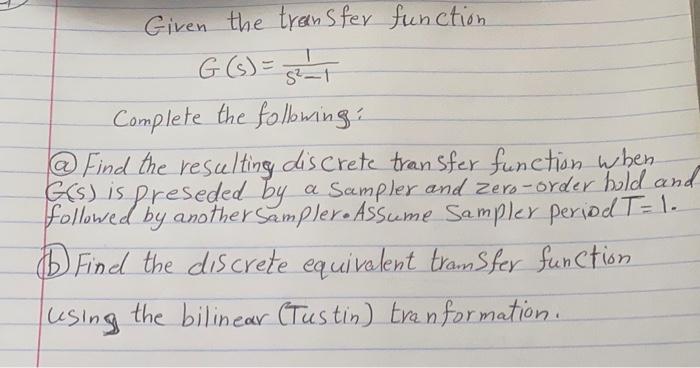 Given the transfer function
G(s) = 1/(S²-1)
Complete the following:
ⓐ Find the resulting discrete transfer function when
G(s) is preseded by a sampler and zero-order hold and
followed by another sampler. Assume Sampler period T=1.
ⓑ Find the discrete equivalent transfer function
using the bilinear (Tustin) tranformation.